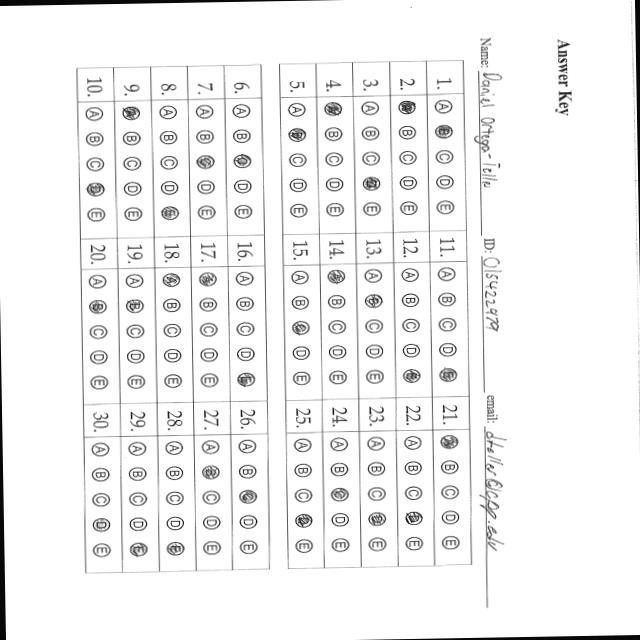 Answer Key
Name: Daniel Ortega-Tello ID: 015422479 email: @cpp.edu
1. A C D E 11. A B C D 21. B C D E
2. B C D E 12. A B C D 22. A B C E
3. A B C E 13. A C D E 23. A B C E
4. B C D E 14. B C D E 24. A B D E
5. A C D E 15. A B D E 25. A B C E
6. A B D E 16. A B C D 26. A B D E
7. A B D E 17. B C D E 27. A C D E
8. A B C D 18. B C D E 28. A B C D
9. B C D E 19. A C D E 29. A B C D
10. A B C E 20. A C D E 30. A B C E